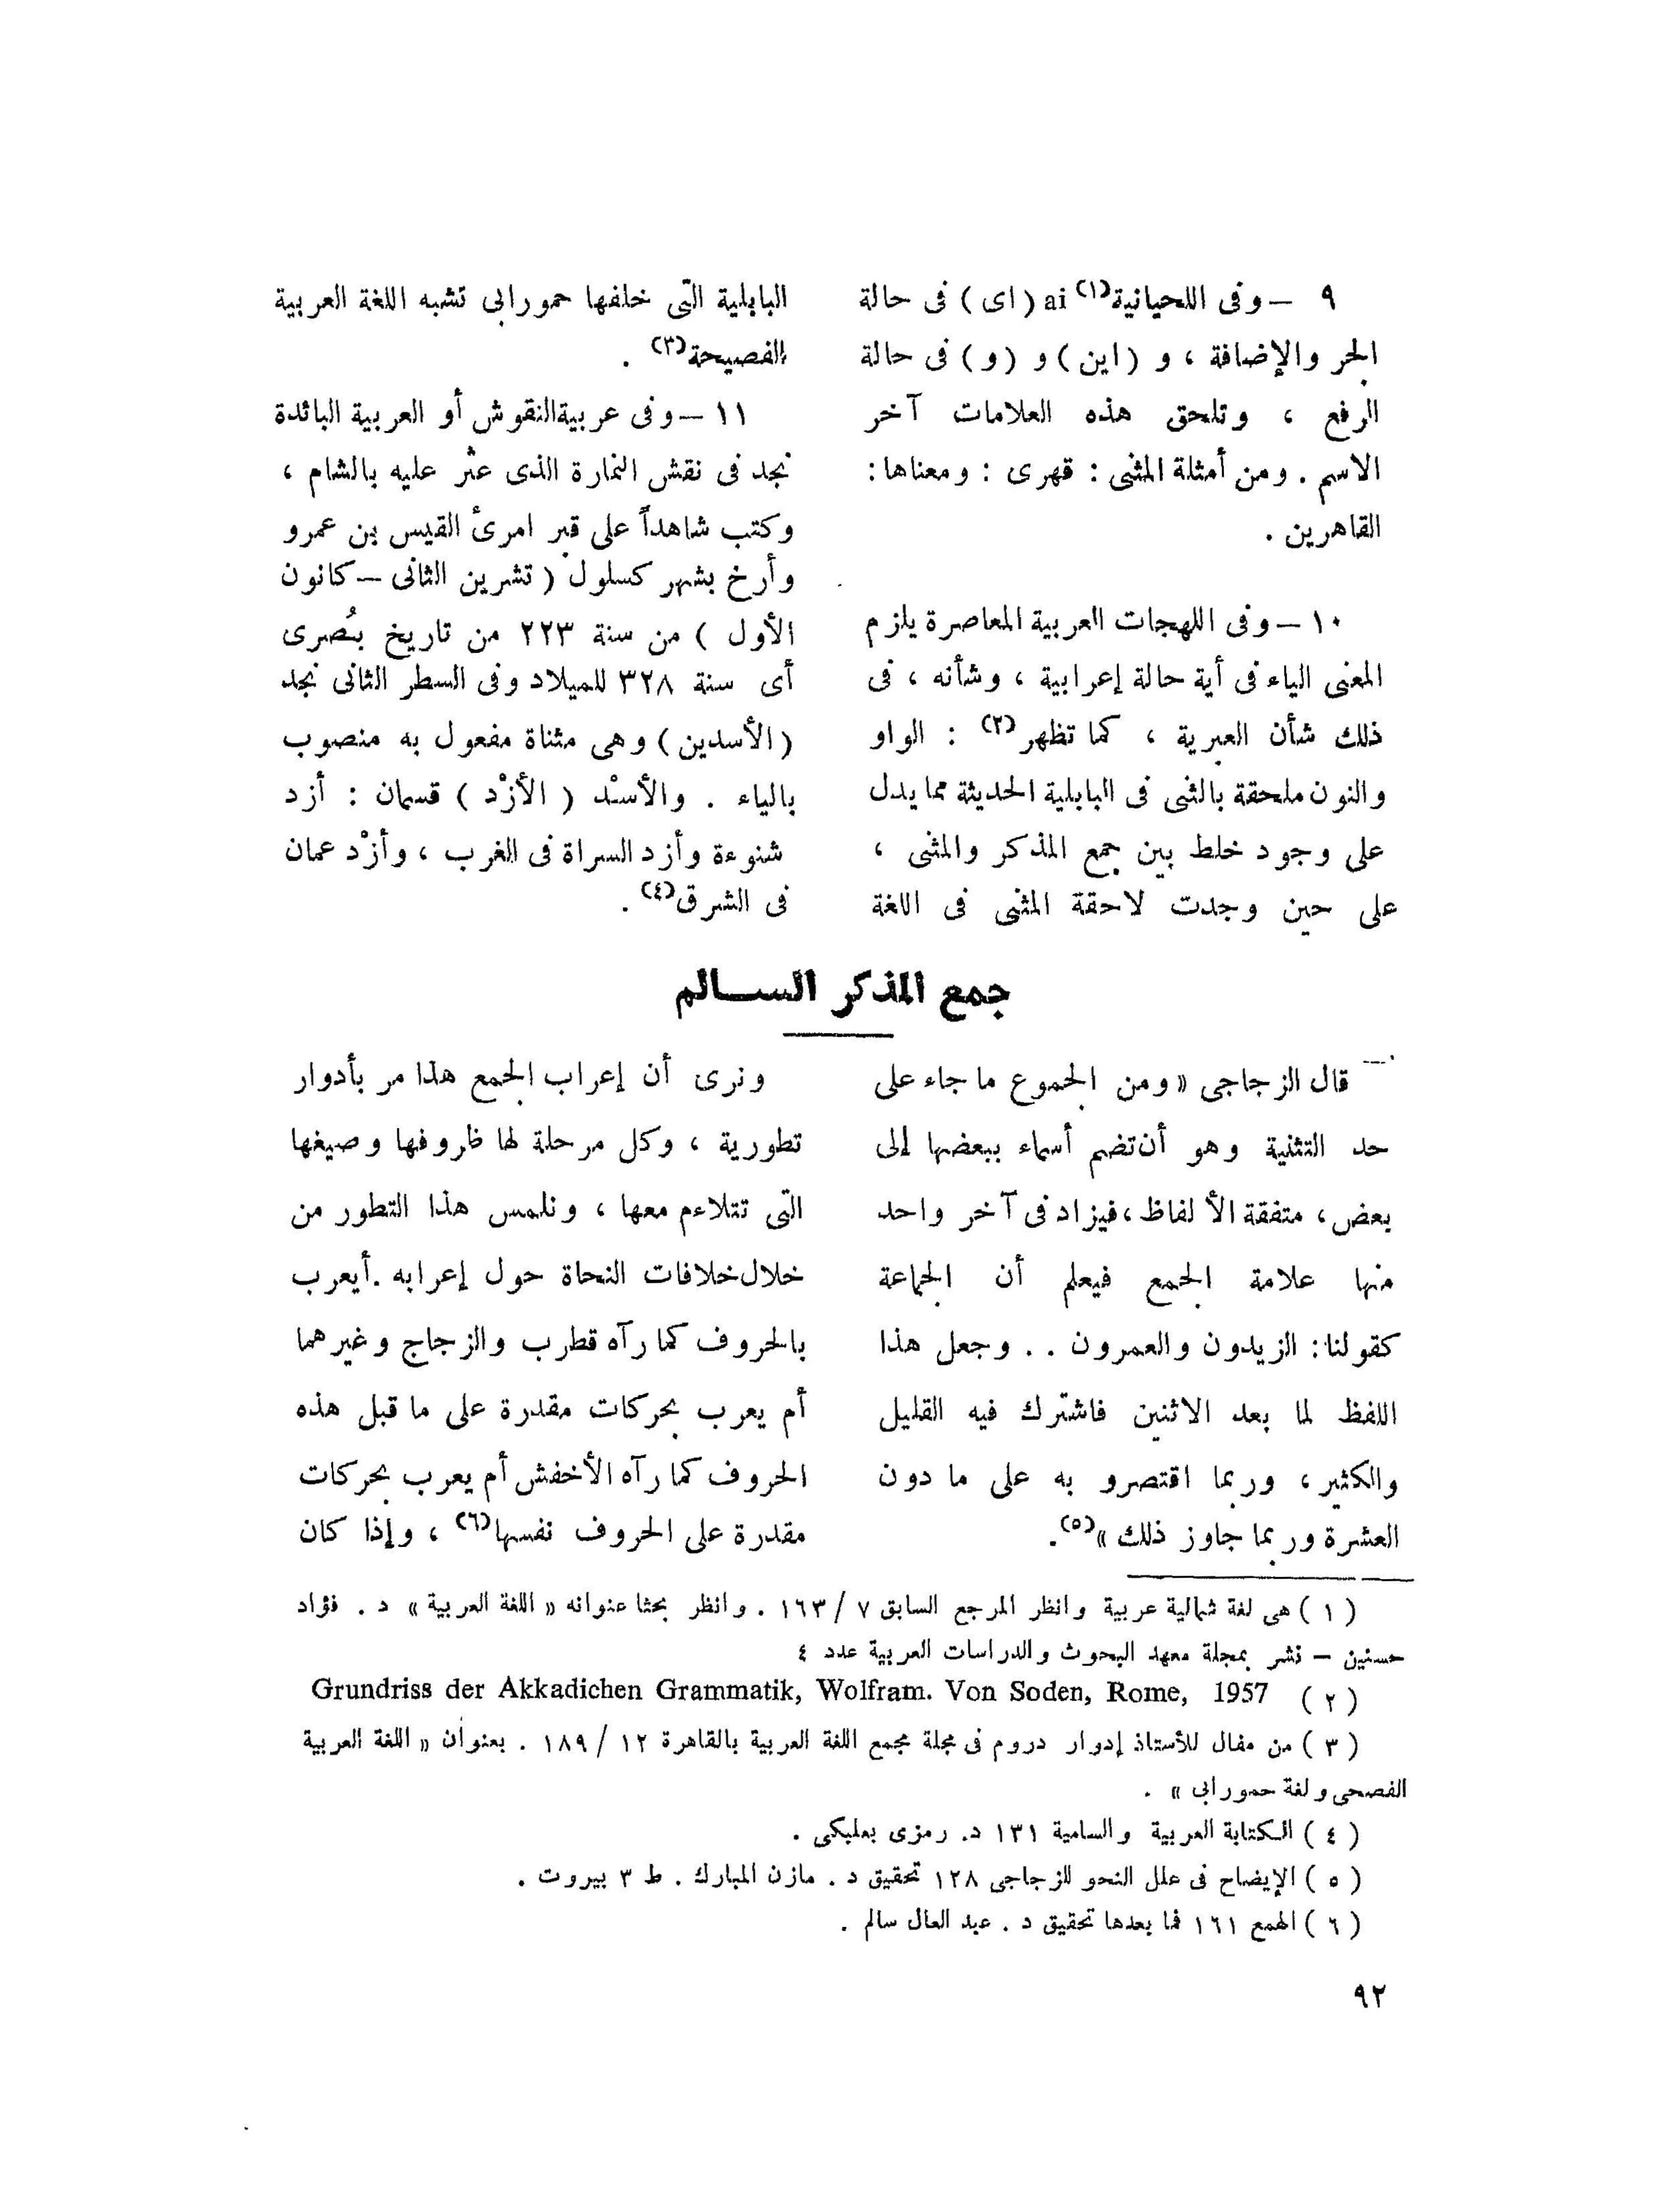 ٩ – وفى اللحيانية(١) ai ( اى ) فى حالة
الجر والإضافة ، و ( اين ) و ( و ) فى حالة
الرفع ، وتلحق هذه العلامات آخر
الاسم . ومن أمثلة المثنى : قهرى : ومعناها :
القاهرين .
١٠ – وفى اللهجات العربية المعاصرة يلزم
المعنى الياء فى أية حالة إعرابية ، وشأنه ، فى
ذلك شأن العبرية ، كما تظهر(٢) : الواو
والنون ملحقة بالثنى فى البابلية الحديثة مما يدل
على وجود خلط بين جمع المذكر والمثنى ،
على حين وجدت لاحقة المثنى فى اللغة
البابلية التى خلفها حمورابى تشبه اللغة العربية
الفصيحة(٣) .
١١ – وفى عربية النقوش أو العربية البائدة
نجد فى نقش النمارة الذى عثر عليه بالشام ،
وكتب شاهداً على قبر امرئ القيس بن عمرو
وأرخ بشهر كسلول ( تشرين الثانى – كانون
الأول ) من سنة ٢٢٣ من تاريخ بُصرى
أى سنة ٣٢٨ للميلاد وفى السطر الثانى نجد
( الأسدين ) وهى مثناة مفعول به منصوب
بالياء . والأسْد ( الأزْد ) قسمان : أزد
شنوءة وأزد السراة فى الغرب ، وأزْد عمان
فى الشرق(٤) .
جمع المذكر السالم
قال الزجاجى « ومن الجموع ما جاء على
حد التثنية وهو أن تضم أسماء ببعضها إلى
بعض ، متفقة الألفاظ ، فيزاد فى آخر واحد
منها علامة الجمع فيعلم أن الجماعة
كقولنا : الزيدون والعمرون . . وجعل هذا
اللفظ لما بعد الاثنين فاشترك فيه القليل
والكثير ، وربما اقتصرو به على ما دون
العشرة وربما جاوز ذلك »(٥) .
ونرى أن إعراب الجمع هذا مر بأدوار
تطورية ، وكل مرحلة لها ظروفها وصيغها
التى تتلاءم معها ، ونلمس هذا التطور من
خلال خلافات النحاة حول إعرابه . أيعرب
بالحروف كما رآه قطرب والزجاج وغيرهما
أم يعرب بحركات مقدرة على ما قبل هذه
الحروف كما رآه الأخفش أم يعرب بحركات
مقدرة على الحروف نفسها(٦) ، وإذا كان
( ١ ) هى لغة شمالية عربية وانظر المرجع السابق ٧ / ١٦٣ . وانظر بحثا عنوانه « اللغة العربية » د . فؤاد
حسنين – نشر بمجلة معهد البحوث والدراسات العربية عدد ٤
( ٢ ) Grundriss der Akkadichen Grammatik, Wolfram. Von Soden, Rome, 1957
( ٣ ) من مفال للأستاذ إدوار دروم فى مجلة مجمع اللغة العربية بالقاهرة ١٢ / ١٨٩ . بعنوان « اللغة العربية
الفصحى ولغة حمورابى » .
( ٤ ) الكتابة العربية والسامية ١٣١ د. رمزى بعلبكى .
( ٥ ) الإيضاح فى علل النحو للزجاجى ١٢٨ تحقيق د . مازن المبارك . ط ٣ بيروت .
( ٦ ) الهمع ١٦١ فما بعدها تحقيق د . عبد العال سالم .
٩٢